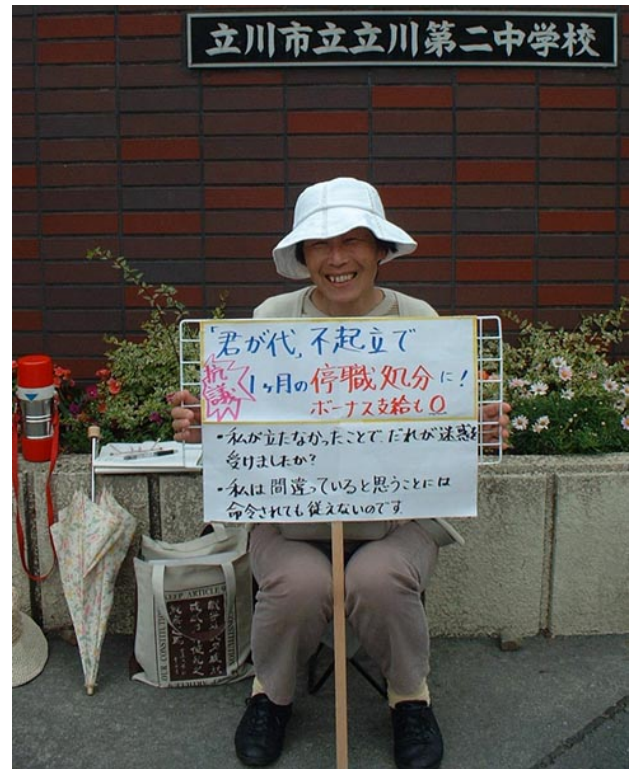 立川市立立川第二中学校
「君が代」不起立で
抗議
1ヶ月の停職処分に!
ボーナス支給も0
・私が立たなかったことで、だれが迷惑を
受けましたか?
・私は間違っていると思うことには
命令されても従えないのです
KEEP ARTICLE 9
OUR CONSTITUTION